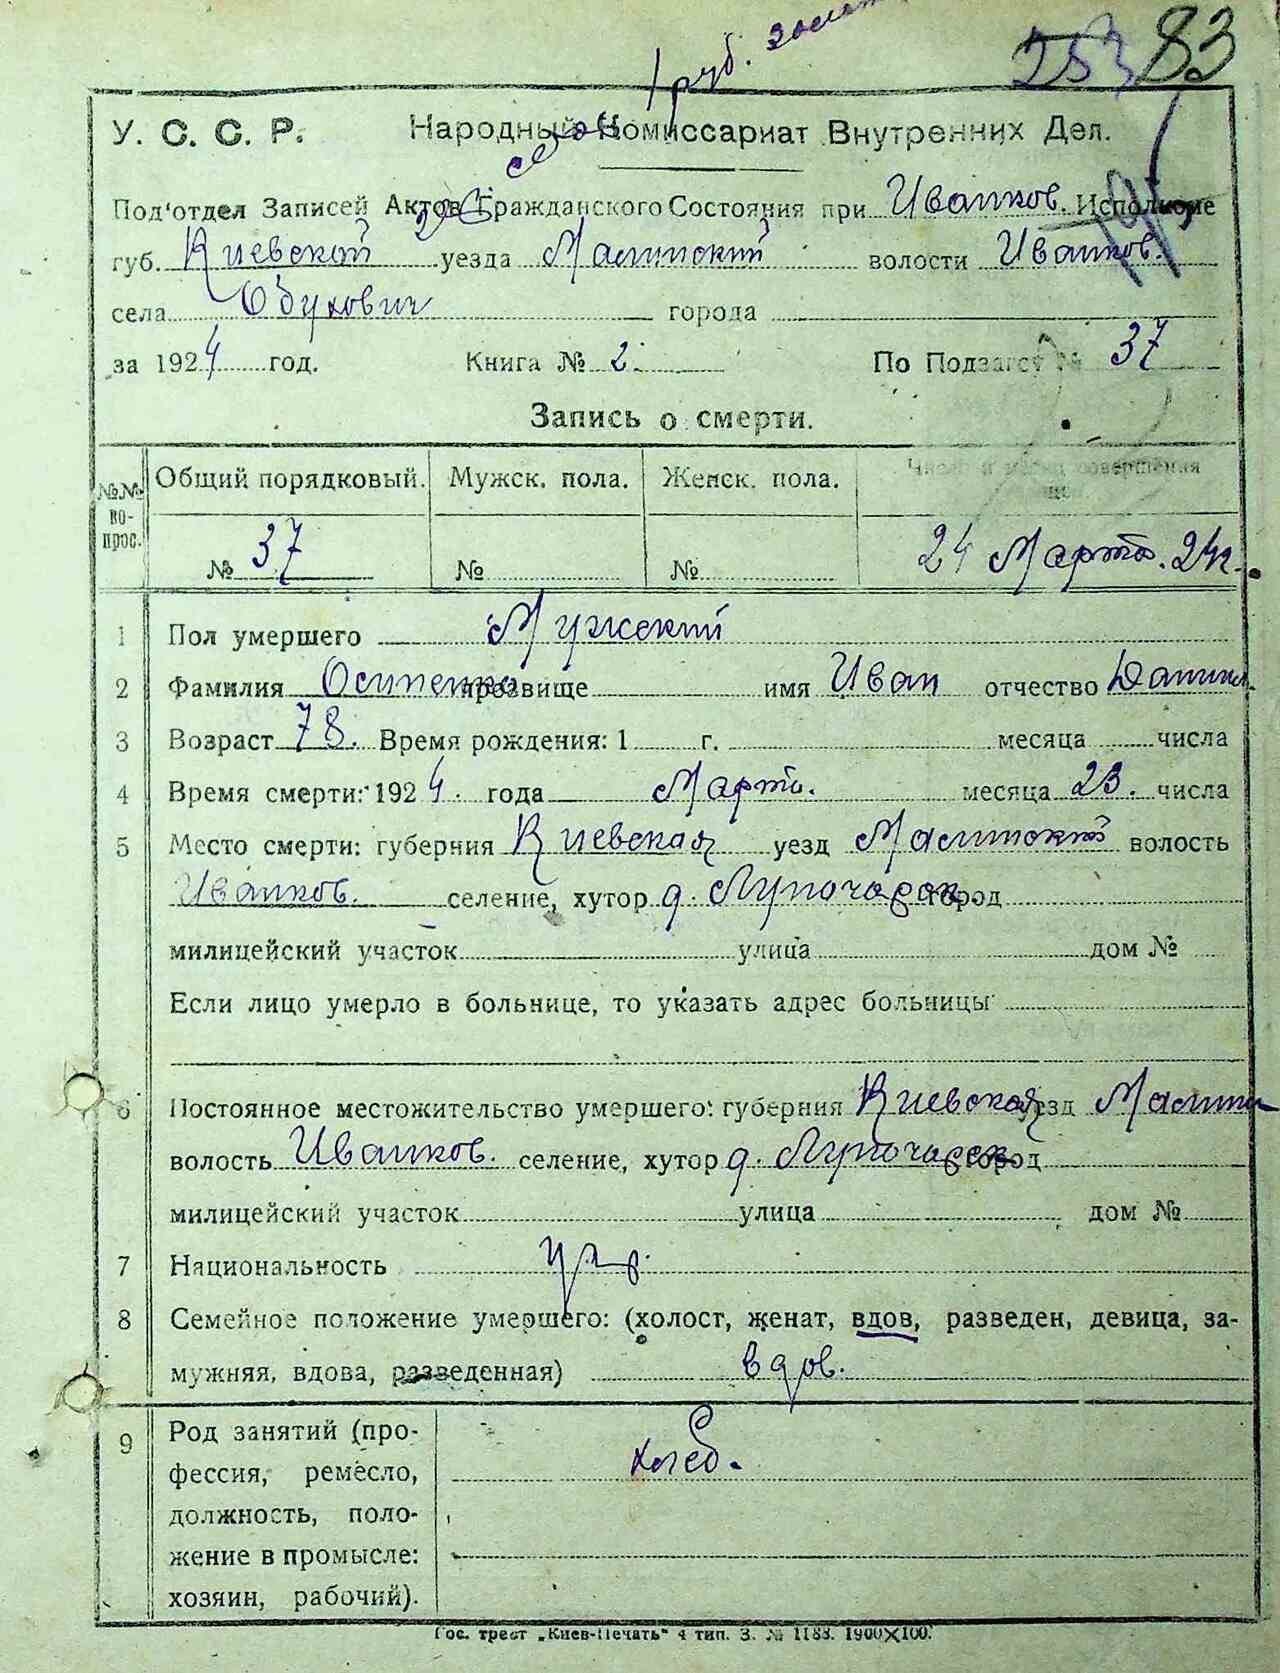 1 руб. золот
253 83
У. С. С. Р. Народный Комиссариат Внутренних Дел.
Под'отдел Записей Актов Гражданского Состояния при Иванков. Исполкоме
губ. Киевской уезда Малинский волости Иванков.
села Обухович города
за 1924 год. Книга № 2. По Подзагсу № 37
Запись о смерти.
№№ во-прос. Общий порядковый. Мужск. пола. Женск. пола. Число и месяц совершения
№ 37 № № 24 Марта. 24г.
1 Пол умершего Мужский
2 Фамилия Осипенко прозвище имя Иван отчество Данил.
3 Возраст 78. Время рождения: 1 г. месяца числа
4 Время смерти: 1924. года Марта. месяца 23. числа
5 Место смерти: губерния Киевская уезд Малинский волость
Иванков. селение, хутор д. город
милицейский участок улица дом №
Если лицо умерло в больнице, то указать адрес больницы
6 Постоянное местожительство умершего: губерния Киевская уезд Малин
волость Иванков. селение, хутор д. город
милицейский участок улица дом №
7 Национальность укр.
8 Семейное положение умершего: (холост, женат, вдов, разведен, девица, за-
мужняя, вдова, разведенная) вдов.
9 Род занятий (про-
фессия, ремесло, хлеб.
должность, поло-
жение в промысле:
хозяин, рабочий).
Гос. трест „Киев-Печать" 4 тип. З. № 1183. 1900×100.